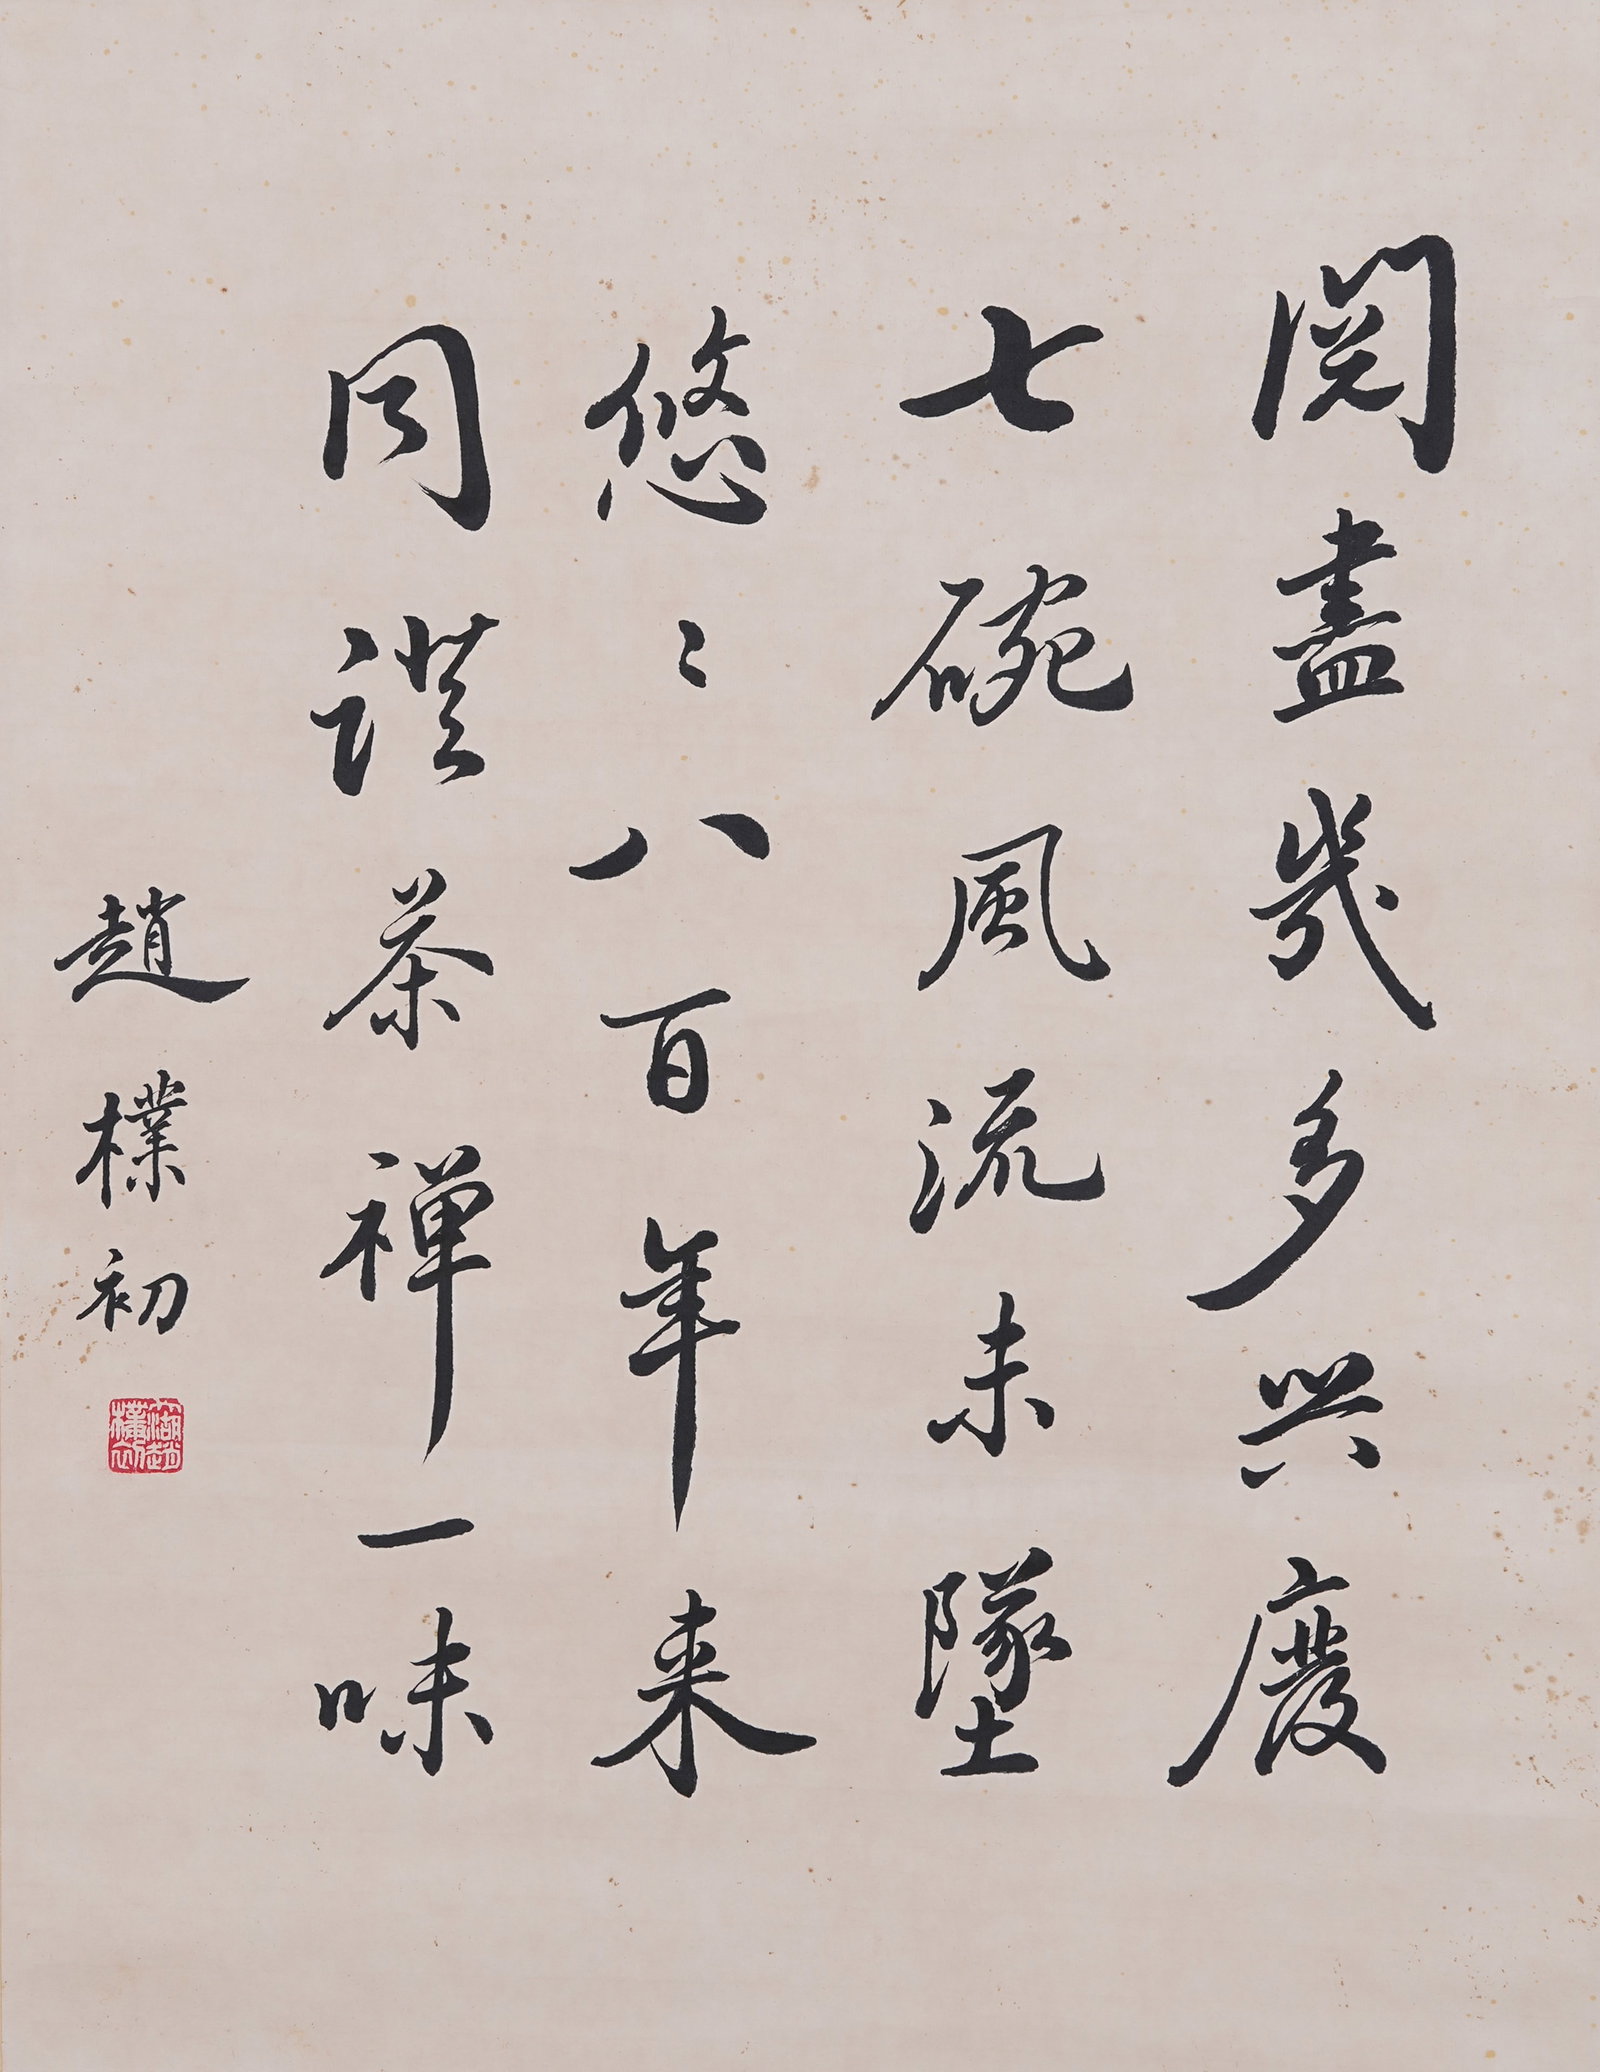 閱盡幾多興廢
七碗風流未墜
悠〻八百年来
同證茶禅一味
趙樸初